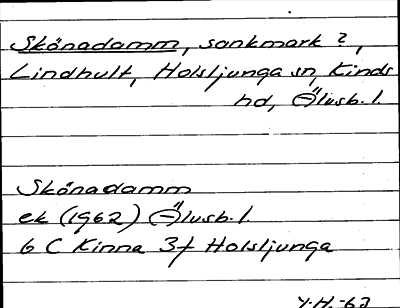 Skönadamm, sankmark?,
Lindhult, Holsljunga sn, Kinds
hd, Älvsb. l.
Skönadamm
ek (1962) Älvsb. l.
6 C Kinna 3f Holsljunga
Y.H. -62